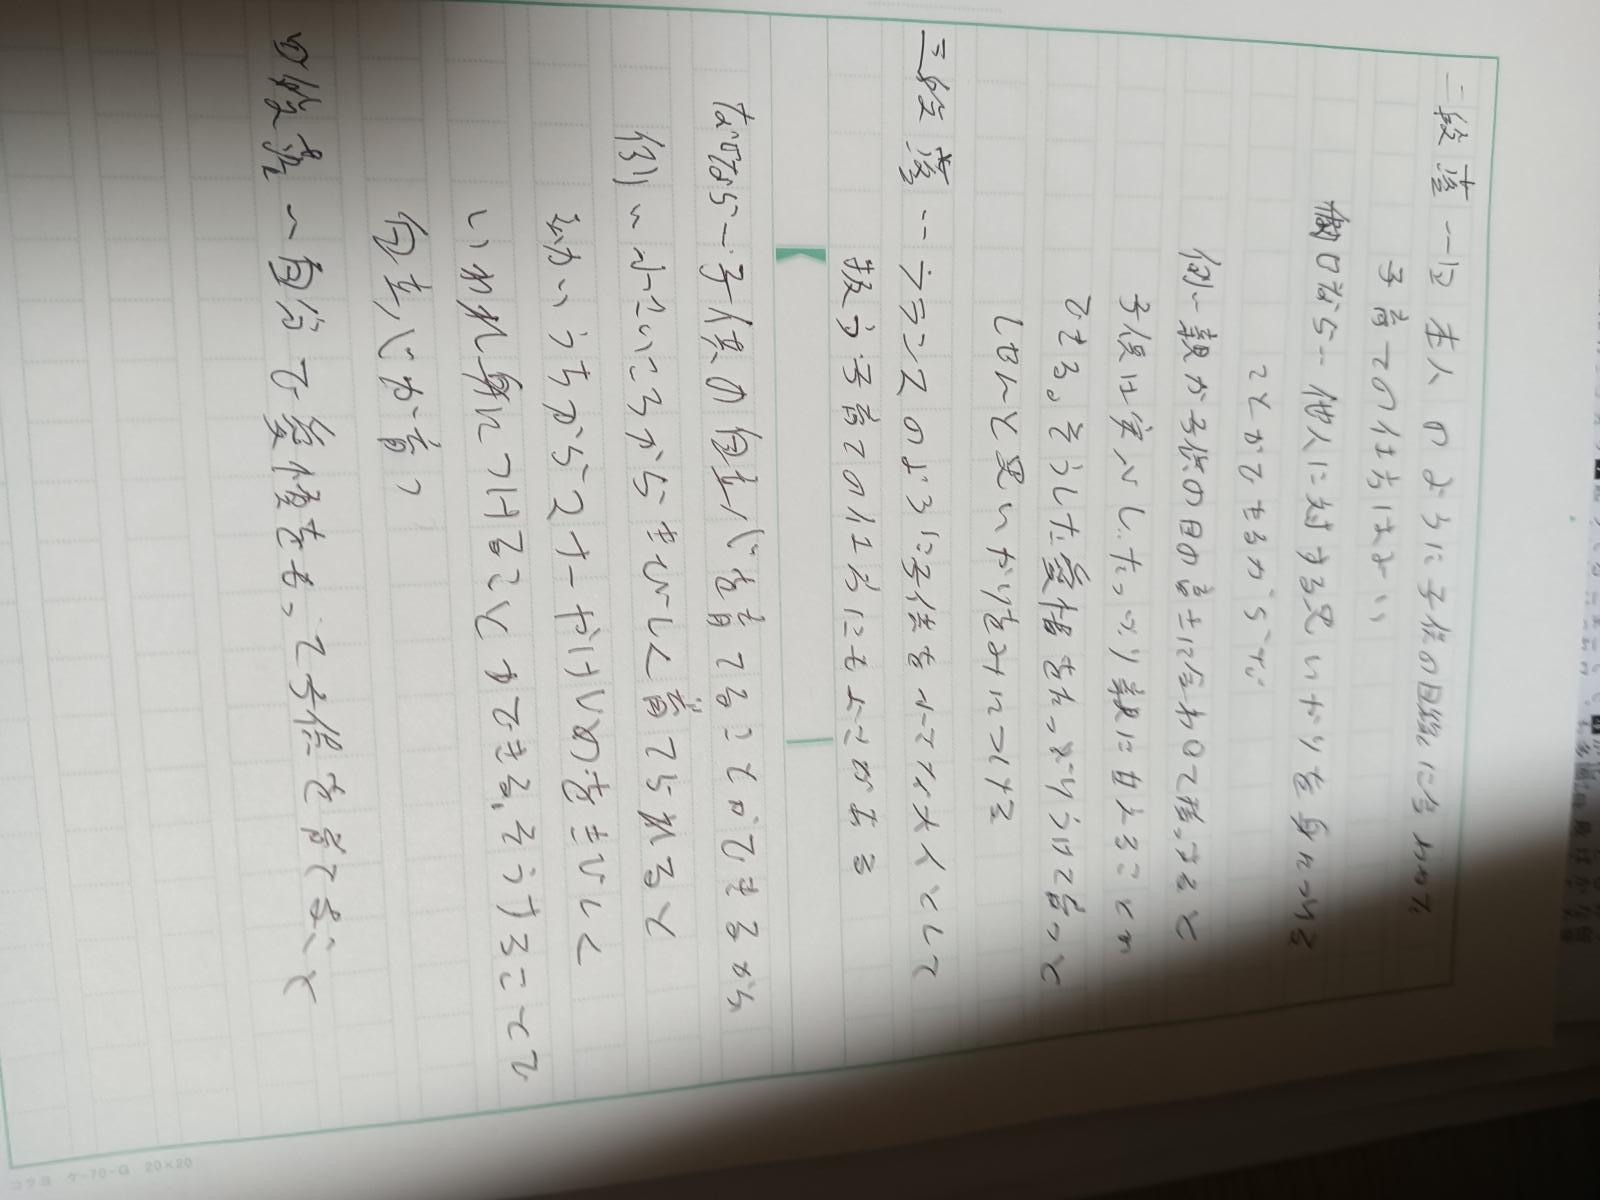 二段落ー日本人のように子供の目線に合わせた
子育ての仕方はよい
なぜなら‥他人に対する思いやりを身につける
ことができるからです。
例ー親が子供の目の高さに合わせて接すると
子供は安心してたっぷり親に甘えることが
できる。そうした愛情をたっぷりうけて育つと
しぜんと思いやりを身につける
三段落‥フランスのように子供を小さな大人として
扱う子育ての仕方にもよさがある
なぜならー子供の自立心を育てることができるから
例ー小さいころからきびしく育てられると
幼いうちからスタートがはじめをきびしく
いわれ身につけることができる。そうすることで
自立心が育つ
四段落ー自分で愛情をもって子供を育てないと
コクヨ ケ-70-G 20×20